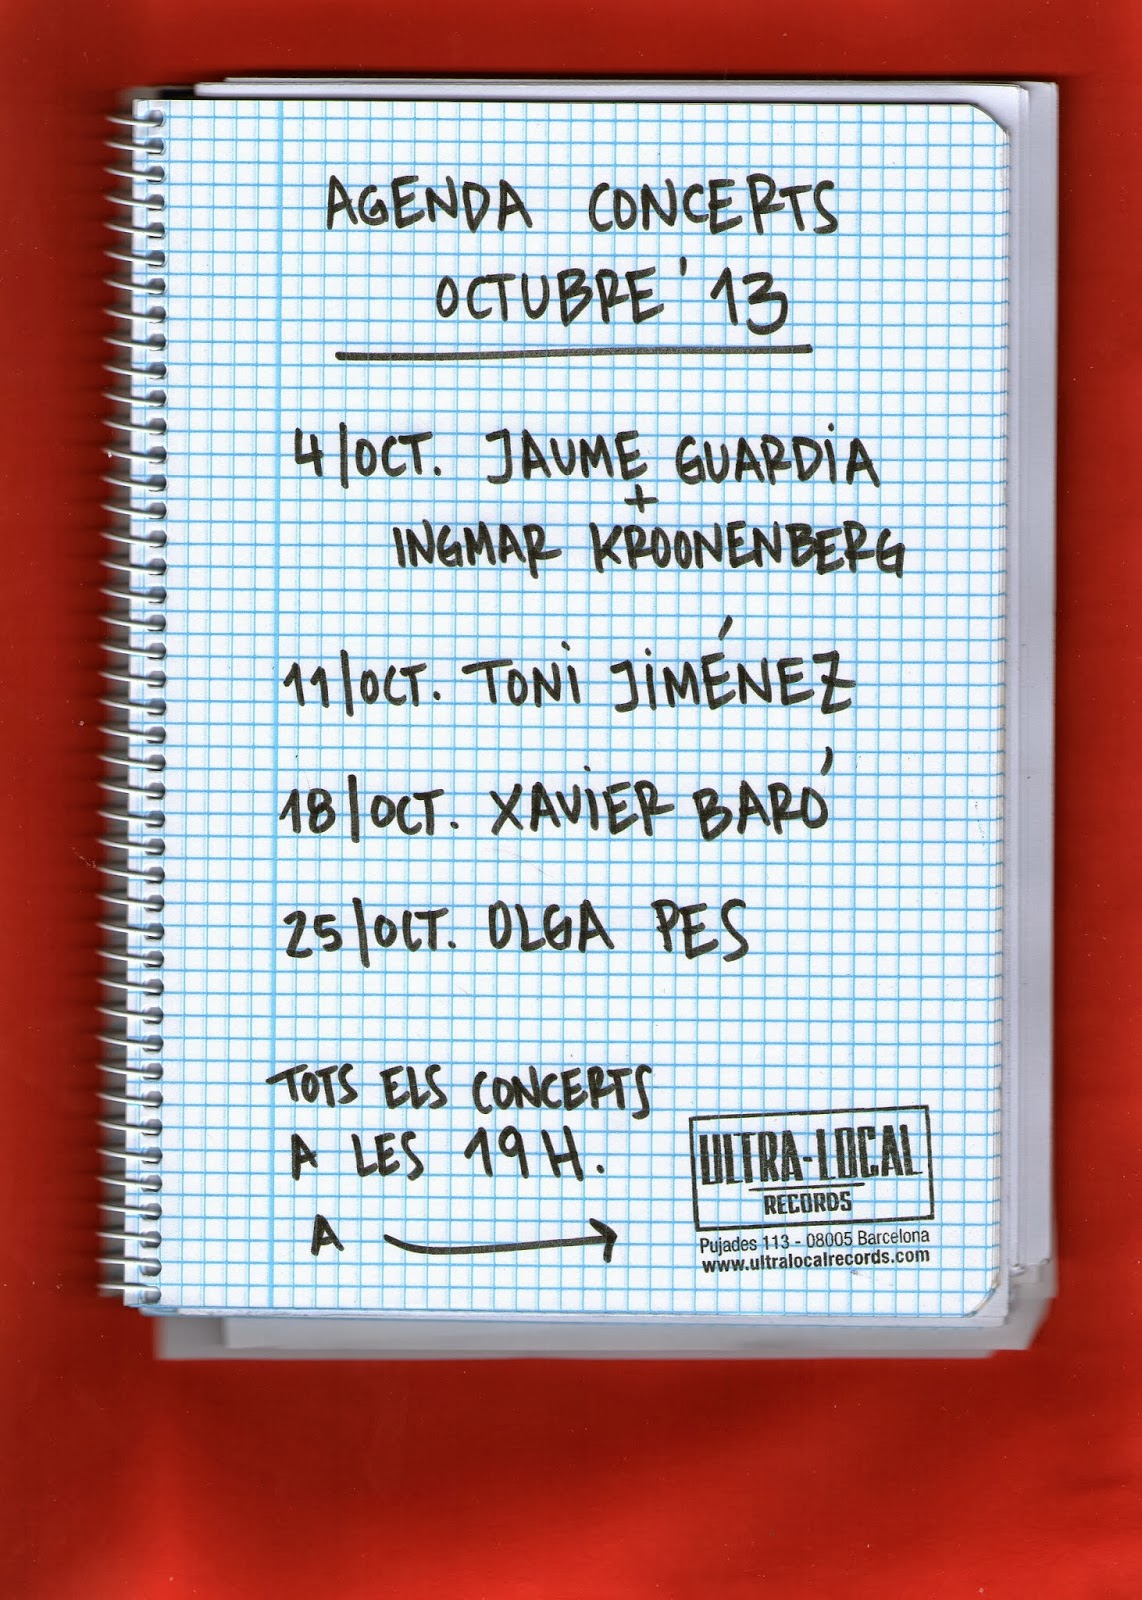 AGENDA CONCERTS
OCTUBRE '13
4/OCT. JAUME GUARDIA
+
INGMAR KROONENBERG
11/OCT. TONI JIMÉNEZ
18/OCT. XAVIER BARÓ
25/OCT. OLGA PES
TOTS ELS CONCERTS
A LES 19H.
A →
ULTRA-LOCAL
RECORDS
Pujades 113 - 08005 Barcelona
www.ultralocalrecords.com